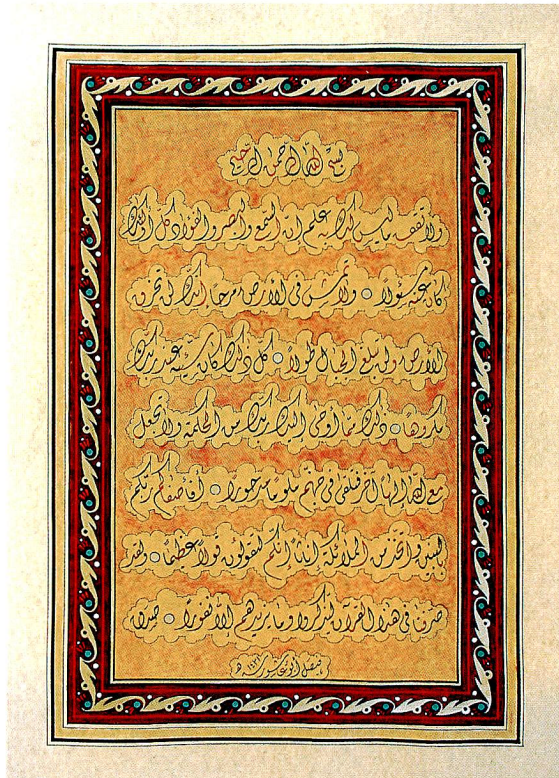 بسم الله الرحمن الرحيم
ولا تقف ما ليس لك به علم ان السمع والبصر والفؤاد كل اولئك
كان عنه مسئولا ○ ولا تمش في الارض مرحا انك لن تخرق
الارض ولن تبلغ الجبال طولا ○ كل ذلك كان سيئه عند ربك
مكروها ○ ذلك مما اوحى اليك ربك من الحكمة ولا تجعل
مع الله الها آخر فتلقى في جهنم ملوما مدحورا ○ أفأصفاكم ربكم
بالبنين واتخذ من الملائكة اناثا إنكم لتقولون قولا عظيما ○ ولقد
صرفنا في هذا القرآن ليذكروا وما يزيدهم إلا نفورا ○ صدق الله
فيصل أبو عاشور